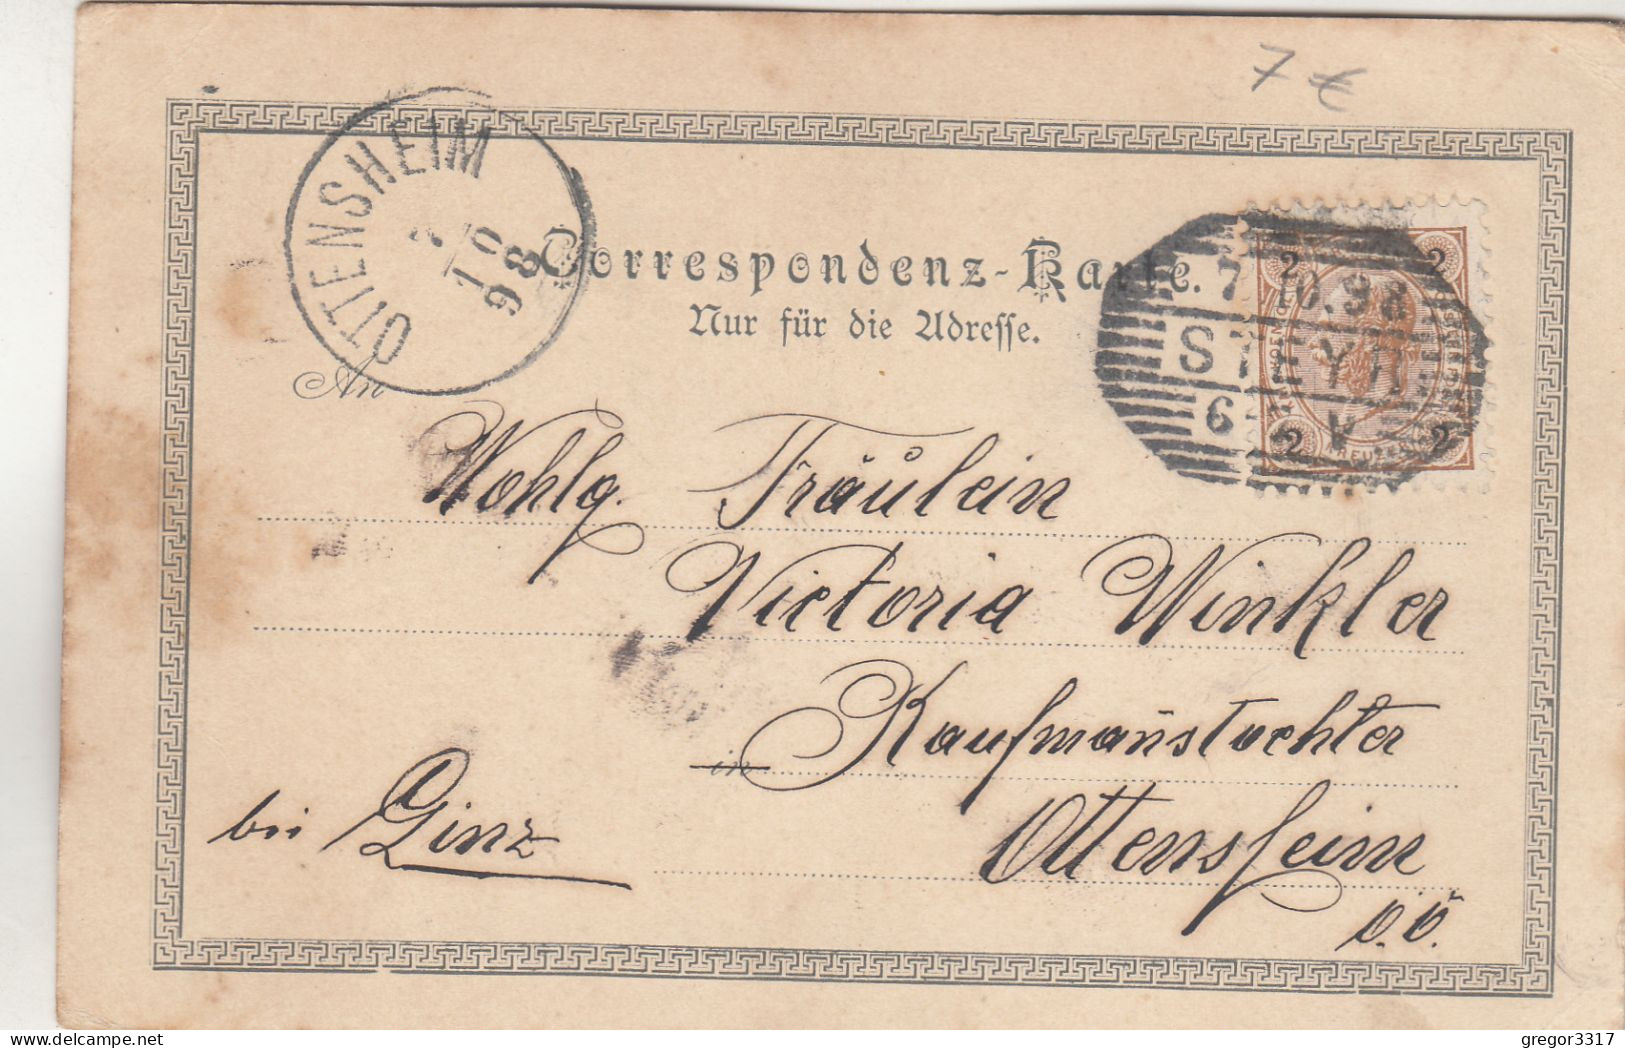 7 €
OTTENSHEIM
7
10
98
Correspondenz-Karte.
Nur für die Adresse.
7 10.98
STEYR
6
V
2 2
2 2
KREUZER
An
Wohlg. Fräulein
Victoria Winkler
in Kaufmannstochter
bei Linz Ottensheim
O.Ö.
www.delcampe.net
gregor3317